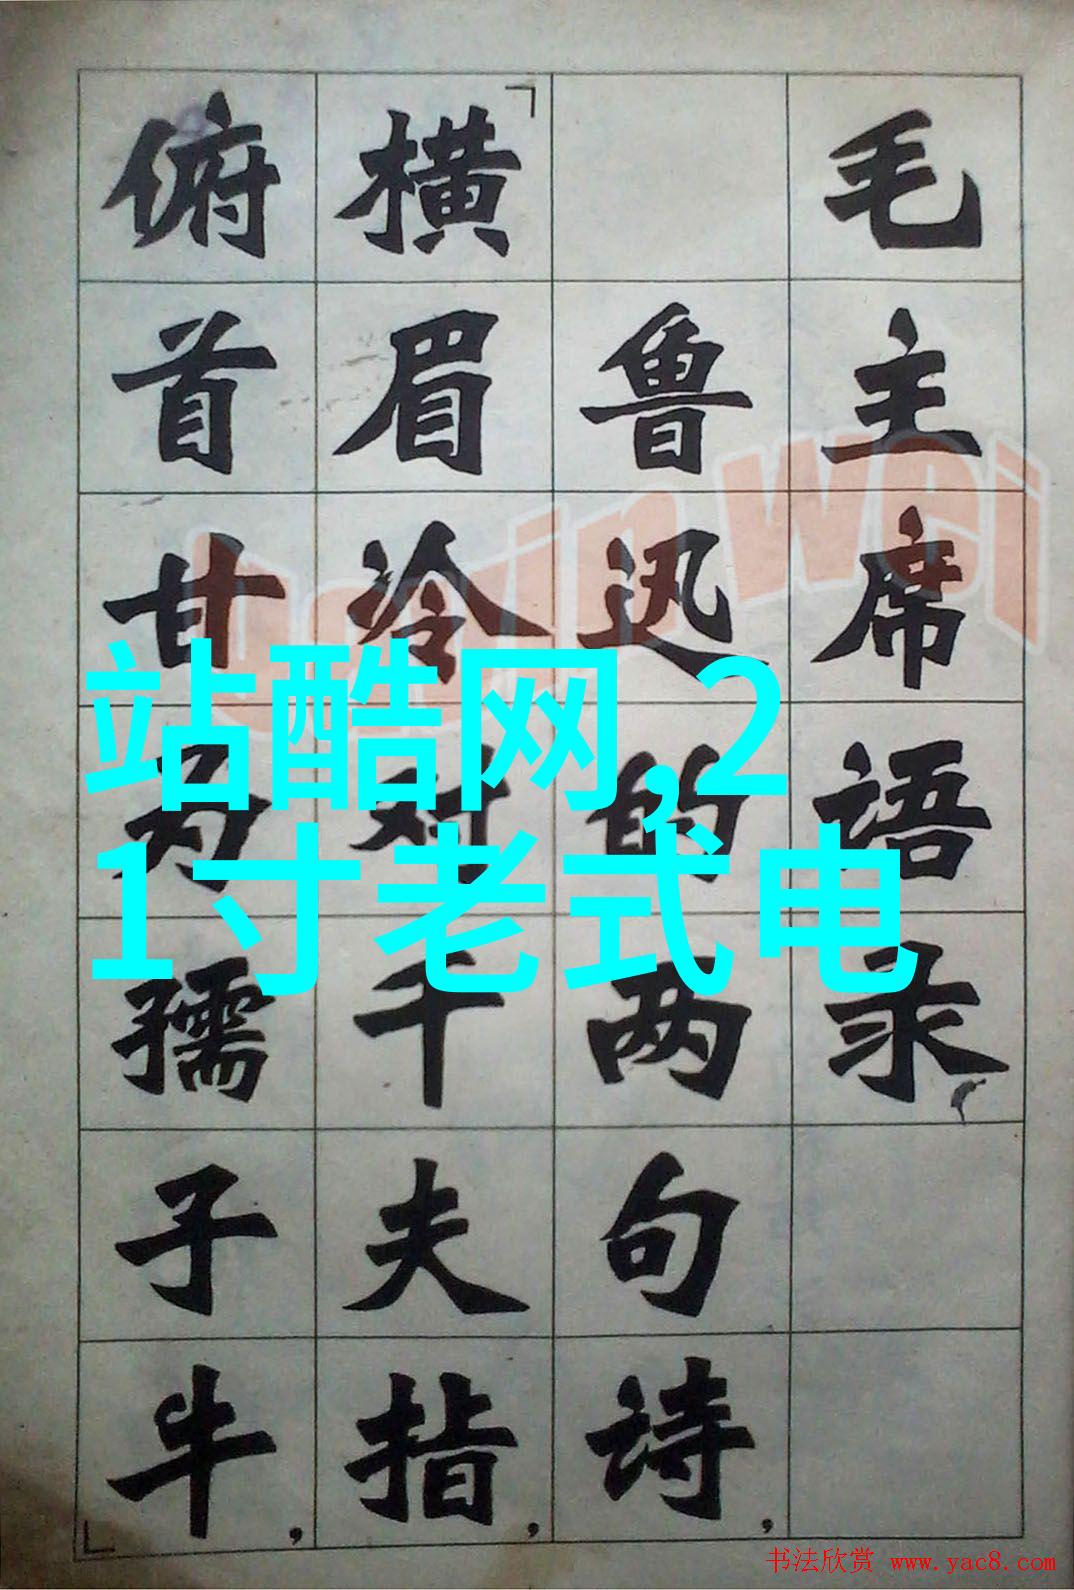 毛主席语录
鲁迅的两句诗,
「横眉冷对千夫指,
俯首甘为孺子牛,」
站酷网,2
1寸老式电
书法欣赏 www.yac8.com